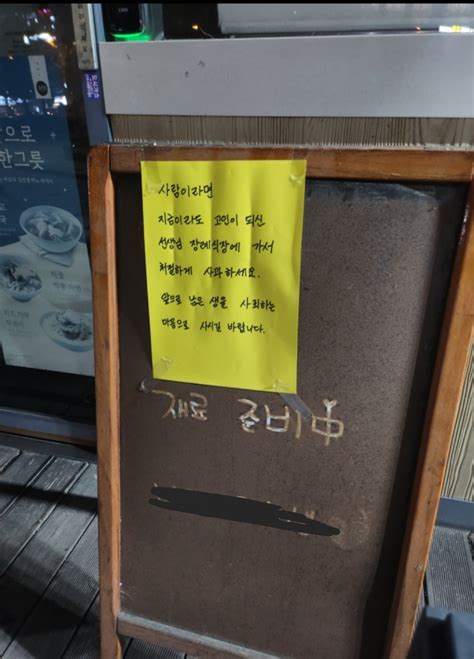 사람이라면
지금이라도 고인이 되신
선생님 장례식장에 가서
처절하게 사과하세요.
앞으로 남은 생을 사죄하는
마음으로 사시길 바랍니다.
재료 준비中
으로
한그릇